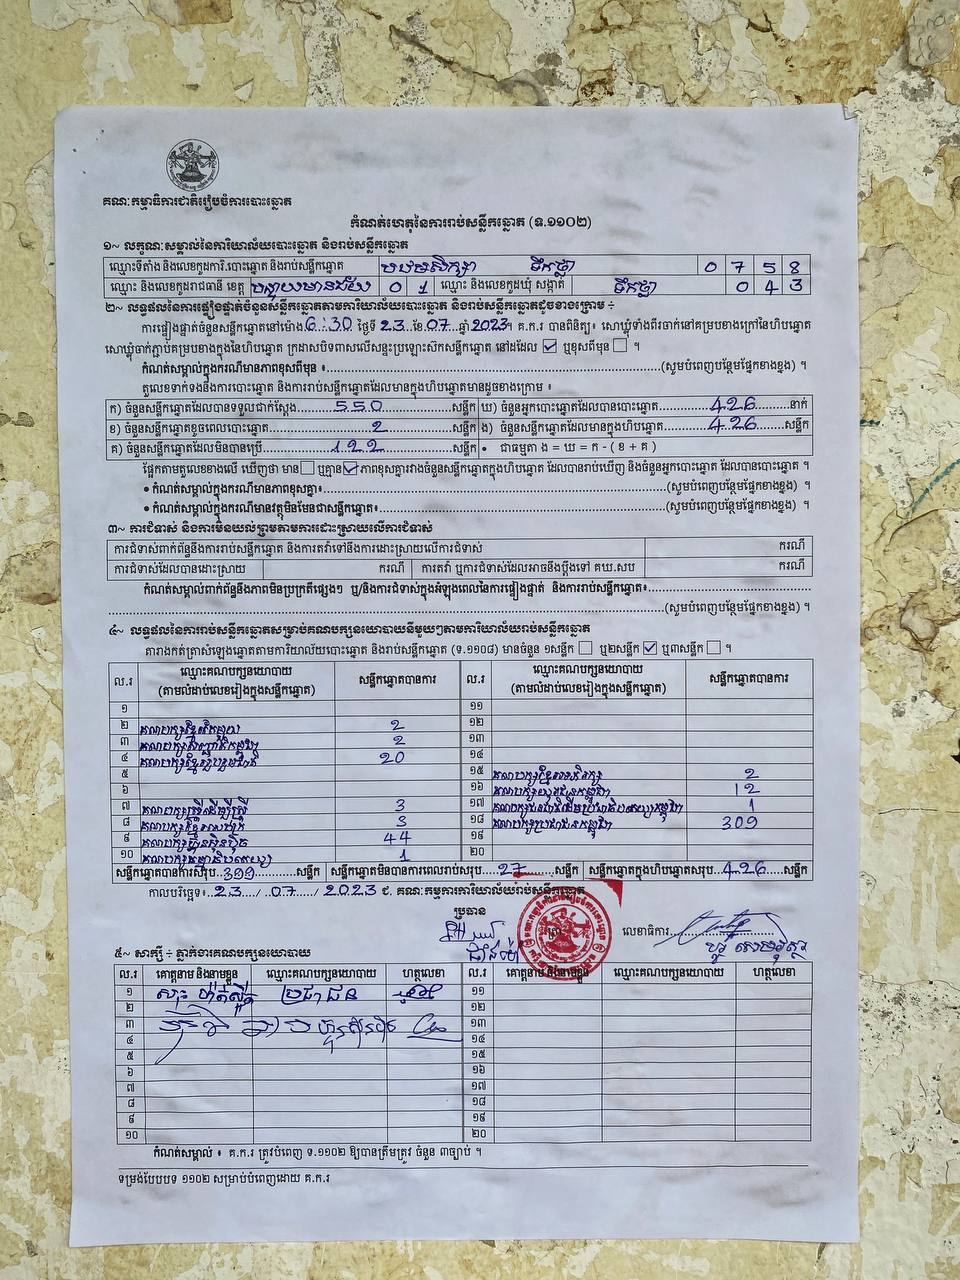 គណៈកម្មាធិការជាតិរៀបចំការបោះឆ្នោត
កំណត់ហេតុនៃការរាប់សន្លឹកឆ្នោត (ទ.១១០២)
១~ លក្ខណៈសម្គាល់នៃការិយាល័យបោះឆ្នោត និងរាប់សន្លឹកឆ្នោត
ឈ្មោះទីតាំង និងលេខកូដការិ.បោះឆ្នោត និងរាប់សន្លឹកឆ្នោត បឋមសិក្សា ទឹកថ្លា 0 7 5 8
ឈ្មោះ និងលេខកូដរាជធានី ខេត្ត បន្ទាយមានជ័យ 0 1 ឈ្មោះ និងលេខកូដឃុំ សង្កាត់ ទឹកថ្លា 0 4 3
២~ លទ្ធផលនៃការផ្ទៀងផ្ទាត់ចំនួនសន្លឹកឆ្នោតតាមការិយាល័យបោះឆ្នោត និងរាប់សន្លឹកឆ្នោតដូចខាងក្រោម ÷
ការផ្ទៀងផ្ទាត់ចំនួនសន្លឹកឆ្នោតនៅម៉ោង 6:30 ថ្ងៃទី 23 ខែ 07 ឆ្នាំ 2023 ។ គ.ក.រ បានពិនិត្យ៖ សោឃ្លុំទាំងពីរចាក់នៅគម្របខាងក្រៅនៃហិបឆ្នោត
សោឃ្លុំចាក់ភ្ជាប់គម្របខាងក្នុងនៃហិបឆ្នោត ក្រដាសបិទពាសលើសន្ទះប្រឡោះស៊ីកសន្លឹកឆ្នោត នៅដដែល ☑ ឬខុសពីមុន ☐ ។
កំណត់សម្គាល់ក្នុងករណីមានភាពខុសពីមុន ៖ (សូមបំពេញបន្ថែមផ្នែកខាងខ្នង) ។
តួលេខទាក់ទងនឹងការបោះឆ្នោត និងការរាប់សន្លឹកឆ្នោតដែលមានក្នុងហិបឆ្នោតមានដូចខាងក្រោម ៖
ក) ចំនួនសន្លឹកឆ្នោតដែលបានទទួលជាក់ស្តែង 550 សន្លឹក ឃ) ចំនួនអ្នកបោះឆ្នោតដែលបានបោះឆ្នោត 426 នាក់
ខ) ចំនួនសន្លឹកឆ្នោតខូចពេលបោះឆ្នោត 2 សន្លឹក ង) ចំនួនសន្លឹកឆ្នោតក្នុងហិបឆ្នោត 426 សន្លឹក
គ) ចំនួនសន្លឹកឆ្នោតដែលមិនបានប្រើ 122 សន្លឹក • ជាធម្មតា ង = ឃ = ក - ( ខ + គ )
ផ្អែកតាមតួលេខខាងលើ ឃើញថា មាន ☐ ឬគ្មាន ☑ ភាពខុសគ្នារវាងចំនួនសន្លឹកឆ្នោតក្នុងហិបឆ្នោត ដែលបានរាប់ឃើញ និងចំនួនអ្នកបោះឆ្នោត ដែលបានបោះឆ្នោត ។
• កំណត់សម្គាល់ក្នុងករណីមានភាពខុសគ្នា៖ (សូមបំពេញបន្ថែមផ្នែកខាងខ្នង) ។
• កំណត់សម្គាល់ក្នុងករណីមានវត្ថុមិនមែនជាសន្លឹកឆ្នោត៖ (សូមបំពេញបន្ថែមផ្នែកខាងខ្នង) ។
៣~ ការជំទាស់ និងការមិនយល់ព្រមតាមការដោះស្រាយលើការជំទាស់
ការជំទាស់ពាក់ព័ន្ធនឹងការរាប់សន្លឹកឆ្នោត និងការតវ៉ាទៅនឹងការដោះស្រាយលើការជំទាស់ ករណី
ការជំទាស់ដែលបានដោះស្រាយ ករណី ការតវ៉ា ឬការជំទាស់ដែលអាចនឹងប្តឹងទៅ គឃ.សប ករណី
កំណត់សម្គាល់ពាក់ព័ន្ធនឹងភាពមិនប្រក្រតីផ្សេងៗ ឬ/និងការជំទាស់ក្នុងអំឡុងពេលនៃការផ្ទៀងផ្ទាត់ និងការរាប់សន្លឹកឆ្នោត៖
(សូមបំពេញបន្ថែមផ្នែកខាងខ្នង) ។
៤~ លទ្ធផលនៃការរាប់សន្លឹកឆ្នោតសម្រាប់គណបក្សនយោបាយនីមួយៗតាមការិយាល័យរាប់សន្លឹកឆ្នោត
តារាងកត់ត្រាសំឡេងឆ្នោតតាមការិយាល័យបោះឆ្នោត និងរាប់សន្លឹកឆ្នោត (ទ.១១០៨) មានចំនួន ១សន្លឹក ☐ ឬ២សន្លឹក ☑ ឬ៣សន្លឹក ☐ ។
ល.រ ឈ្មោះគណបក្សនយោបាយ (តាមលំដាប់លេខរៀងក្នុងសន្លឹកឆ្នោត) សន្លឹកឆ្នោតបានការ ល.រ ឈ្មោះគណបក្សនយោបាយ (តាមលំដាប់លេខរៀងក្នុងសន្លឹកឆ្នោត) សន្លឹកឆ្នោតបានការ
១ ១១
២ 2 ១២
៣ 2 ១៣
៤ គណបក្សខ្មែររួបរួមជាតិ 20 ១៤
៥ ១៥ 2
៦ ១៦ គណបក្សយុវជនកម្ពុជា 12
៧ គណបក្សស្ត្រីដើម្បីស្ត្រី 3 ១៧ 1
៨ 3 ១៨ គណបក្សប្រជាជនកម្ពុជា 309
៩ គណបក្សហ៊្វុនស៊ិនប៉ិច 44 ១៩
១០ គណបក្សធម្មាធិបតេយ្យ 1 ២០
សន្លឹកឆ្នោតបានការសរុប 399 សន្លឹក សន្លឹកឆ្នោតមិនបានការពេលរាប់សរុប 27 សន្លឹក សន្លឹកឆ្នោតក្នុងហិបឆ្នោតសរុប 426 សន្លឹក
កាលបរិច្ឆេទ៖ 23 / 07 / 2023 ជ. គណៈកម្មការការិយាល័យរាប់សន្លឹកឆ្នោត
ប្រធាន
លេខាធិការ
៥~ សាក្សី ÷ ភ្នាក់ងារគណបក្សនយោបាយ
ល.រ គោត្តនាម និងនាមខ្លួន ឈ្មោះគណបក្សនយោបាយ ហត្ថលេខា ល.រ គោត្តនាម និងនាមខ្លួន ឈ្មោះគណបក្សនយោបាយ ហត្ថលេខា
១ ប្រជាជន ១១
២ ១២
៣ ហ៊្វុនស៊ិនប៉ិច ១៣
៤ ១៤
៥ ១៥
៦ ១៦
៧ ១៧
៨ ១៨
៩ ១៩
១០ ២០
កំណត់សម្គាល់ ៖ គ.ក.រ ត្រូវបំពេញ ទ.១១០២ ឱ្យបានត្រឹមត្រូវ ចំនួន ៣ច្បាប់ ។
ទម្រង់បែបបទ ១១០២ សម្រាប់បំពេញដោយ គ.ក.រ